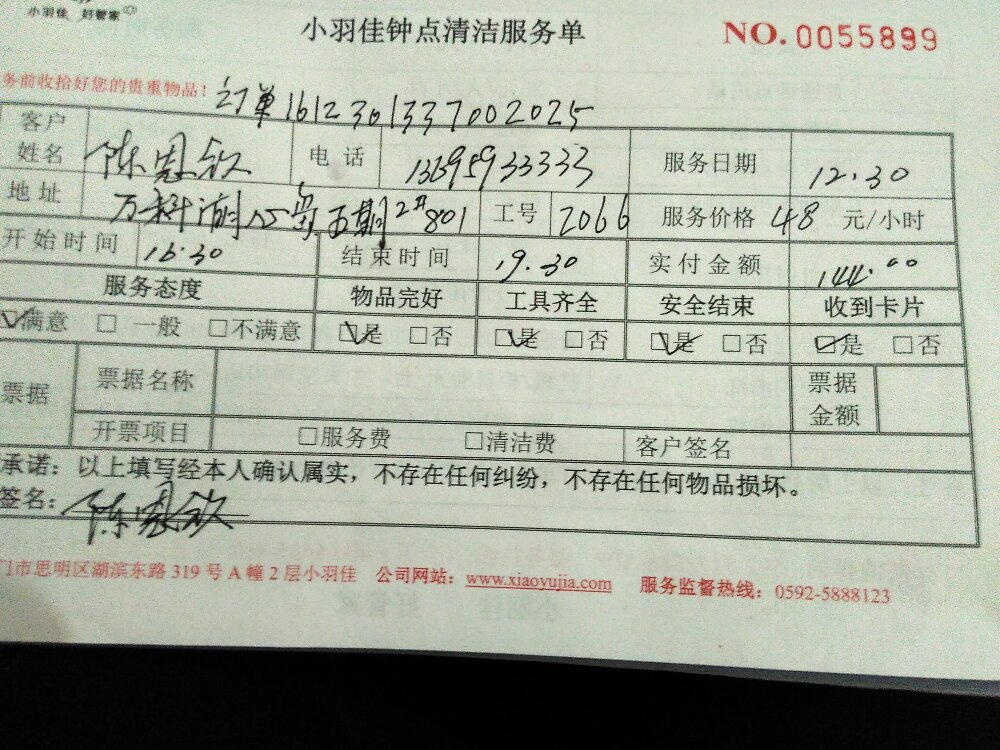 小羽佳 好管家
小羽佳钟点清洁服务单
NO.0055899
务前收拾好您的贵重物品！
订单1612301337002025
客户姓名 陈恩钦 电话 13695933333 服务日期 12.30
地址 万科湖心岛五期2#801 工号 2066 服务价格 48 元/小时
开始时间 16:30 结束时间 19.30 实付金额 144.00
服务态度 物品完好 工具齐全 安全结束 收到卡片
☑满意 □一般 □不满意 ☑是 □否 ☑是 □否 ☑是 □否 ☑是 □否
票据 票据名称 票据金额
开票项目 □服务费 □清洁费 客户签名
承诺：以上填写经本人确认属实，不存在任何纠纷，不存在任何物品损坏。
签名：陈恩钦
门市思明区湖滨东路 319 号 A 幢 2 层小羽佳 公司网站：www.xiaoyujia.com 服务监督热线：0592-5888123